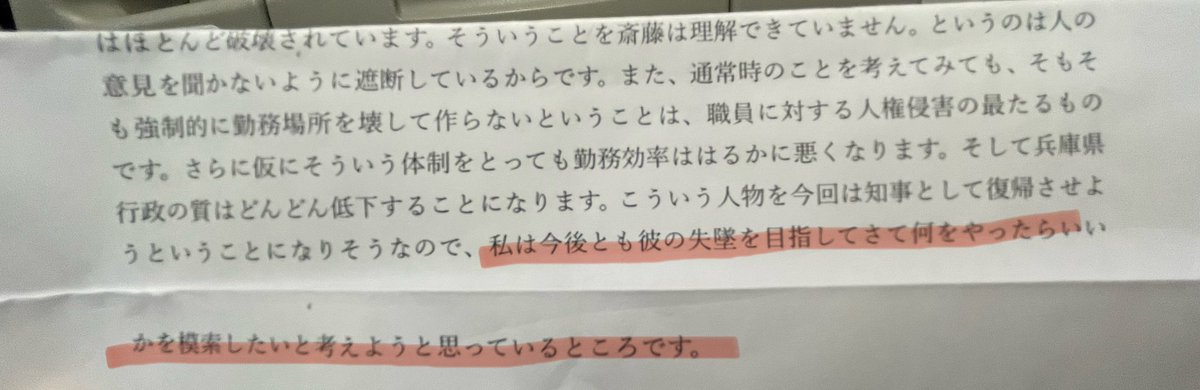 はほとんど破壊されています。そういうことを斎藤は理解できていません。というのは人の
意見を聞かないように遮断しているからです。また、通常時のことを考えてみても、そもそ
も強制的に勤務場所を壊して作らないということは、職員に対する人権侵害の最たるもの
です。さらに仮にそういう体制をとっても勤務効率ははるかに悪くなります。そして兵庫県
行政の質はどんどん低下することになります。こういう人物を今回は知事として復帰させよ
うということになりそうなので、私は今後とも彼の失墜を目指してさて何をやったらいい
かを模索したいと考えようと思っているところです。